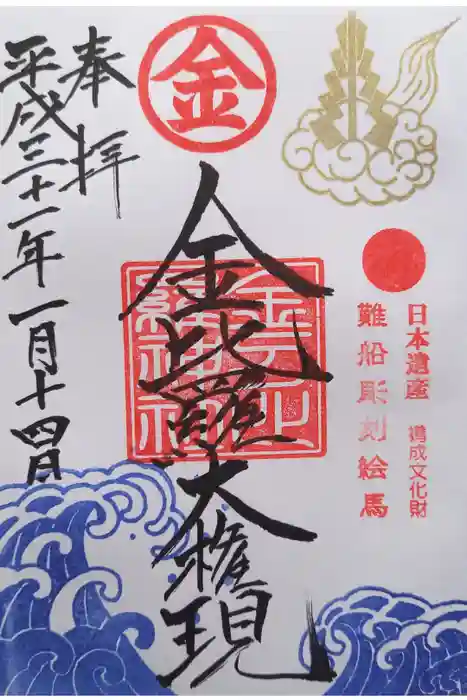 日本遺産 構成文化財
難船彫刻絵馬
金
金比羅大権現
金刀比
羅神社
奉拝
平成三十一年一月十四日